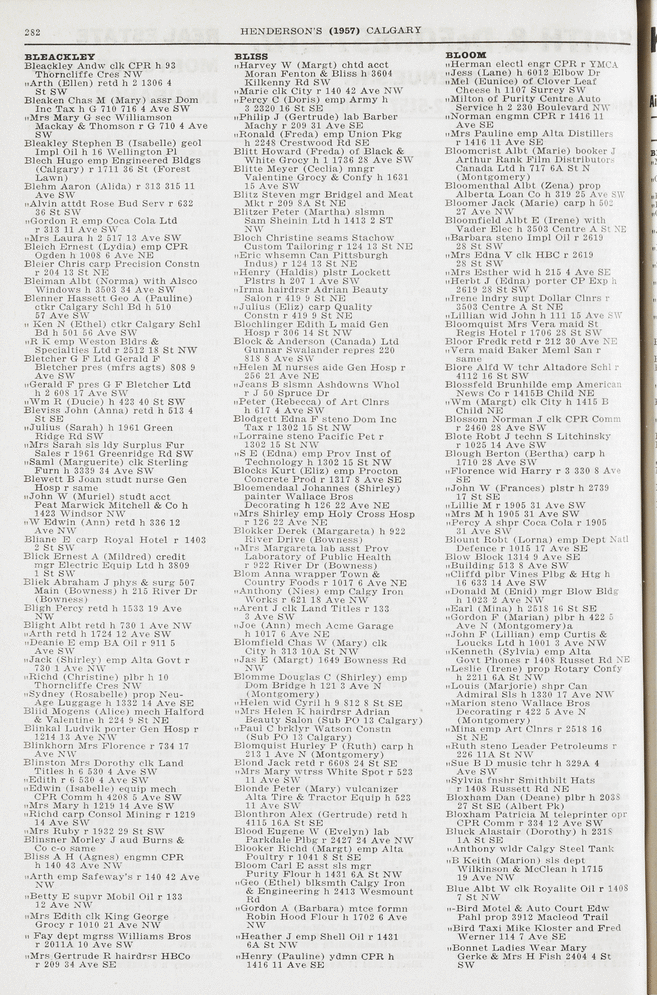 282
HENDERSON'S (1957) CALGARY
BLEACKLEY
Bleackley Andw clk CPR h 93
Thorncliffe Cres NW
"Arth (Ellen) retd h 2 1306 4
St SW
Bleaken Chas M (Mary) assr Dom
Inc Tax h G 710 716 4 Ave SW
"Mrs Mary G sec Williamson
Mackay & Thomson r G 710 4 Ave
SW
Bleakley Stephen B (Isabelle) geol
Impl Oil h 16 Wellington Pl
Blech Hugo emp Engineered Bldgs
(Calgary) r 1711 36 St (Forest
Lawn)
Blehm Aaron (Alida) r 313 315 11
Ave SW
"Alvin attdt Rose Bud Serv r 632
36 St SW
"Gordon R emp Coca Cola Ltd
r 313 11 Ave SW
"Mrs Laura h 2 517 13 Ave SW
Bleich Ernest (Lydia) emp CPR
Ogden h 1008 6 Ave NE
Bleier Chris carp Precision Constn
r 204 13 St NE
Bleiman Albt (Norma) with Alsco
Windows h 3503 34 Ave SW
Blenner Hassett Geo A (Pauline)
ctkr Calgary Schl Bd h 510
57 Ave SW
" Ken N (Ethel) ctkr Calgary Schl
Bd h 501 56 Ave SW
"R K emp Weston Bldrs &
Specialties Ltd r 2512 18 St NW
Bletcher G F Ltd Gerald F
Bletcher pres (mfrs agts) 808 9
Ave SW
"Gerald F pres G F Bletcher Ltd
h 2 608 17 Ave SW
"Wm R (Ducie) h 423 40 St SW
Bleviss John (Anna) retd h 513 4
St SE
"Julius (Sarah) h 1961 Green
Ridge Rd SW
"Mrs Sarah sls ldy Surplus Fur
Sales r 1961 Greenridge Rd SW
"Saml (Marguerite) clk Sterling
Furn h 3339 34 Ave SW
Blewett B Joan studt nurse Gen
Hosp r same
"John W (Muriel) studt acct
Peat Marwick Mitchell & Co h
1423 Windsor NW
"W Edwin (Ann) retd h 336 12
Ave NW
Bliane E carp Royal Hotel r 1403
2 St SW
Blick Ernest A (Mildred) credit
mgr Electric Equip Ltd h 3809
1 St SW
Bliek Abraham J phys & surg 507
Main (Bowness) h 215 River Dr
(Bowness)
Bligh Percy retd h 1533 19 Ave
NW
Blight Albt retd h 730 1 Ave NW
"Arth retd h 1724 12 Ave SW
"Deanie E emp BA Oil r 911 5
Ave SW
"Jack (Shirley) emp Alta Govt r
730 1 Ave NW
"Richd (Christine) plbr h 10
Thorncliffe Cres NW
"Sydney (Rosabelle) prop Neu-
Age Luggage h 1332 14 Ave SE
Bliid Mogens (Alice) mech Halford
& Valentine h 224 9 St NE
Blinkal Ludvik porter Gen Hosp r
1214 13 Ave NW
Blinkhorn Mrs Florence r 734 17
Ave NW
Blinston Mrs Dorothy clk Land
Titles h 6 530 4 Ave SW
"Edith r 6 530 4 Ave SW
"Edwin (Isabelle) equip mech
CPR Comm h 4208 5 Ave SW
"Mrs Mary h 1219 14 Ave SW
"Richd carp Consol Mining r 1219
14 Ave SW
"Mrs Ruby r 1932 29 St SW
Blinsner Morley J aud Burns &
Co c-o same
Bliss A H (Agnes) engmn CPR
h 140 43 Ave NW
"Arth emp Safeway's r 140 42 Ave
NW
"Betty E supvr Mobil Oil r 133
12 Ave NW
"Mrs Edith clk King George
Grocy r 1010 21 Ave NW
" Fay dept mgrss Williams Bros
r 2011A 10 Ave SW
"Mrs Gertrude R hairdrsr HBCo
r 209 34 Ave SE
BLISS
"Harvey W (Margt) chtd acct
Moran Fenton & Bliss h 3604
Kilkenny Rd SW
"Marie clk City r 140 42 Ave NW
"Percy C (Doris) emp Army h
3 2320 16 St SE
"Philip J (Gertrude) lab Barber
Machy r 209 31 Ave SE
"Ronald (Freda) emp Union Pkg
h 2248 Crestwood Rd SE
Blitt Howard (Freda) of Black &
White Grocy h 1 1736 28 Ave SW
Blitte Meyer (Cecila) mngr
Valentine Grocy & Confy h 1631
15 Ave SW
Blitz Steven mgr Bridgel and Meat
Mkt r 209 8A St NE
Blitzer Peter (Martha) slsmn
Sam Sheinin Ltd h 1413 2 ST
NW
Bloch Christine seams Stachow
Custom Tailoring r 124 13 St NE
"Eric whsemn Can Pittsburgh
Indus) r 124 13 St NE
"Henry (Haldis) plstr Lockett
Plstrs h 207 1 Ave SW
"Irma hairdrsr Adrian Beauty
Salon r 419 9 St NE
"Julius (Eliz) carp Quality
Constn r 419 9 St NE
Blochlinger Edith L maid Gen
Hosp r 306 14 St NW
Block & Anderson (Canada) Ltd
Gunnar Swalander repres 220
818 8 Ave SW
"Helen M nurses aide Gen Hosp r
256 21 Ave NE
"Jeans B slsmn Ashdowns Whol
r J 50 Spruce Dr
"Peter (Rebecca) of Art Clnrs
h 617 4 Ave SW
Blodgett Edna F steno Dom Inc
Tax r 1302 15 St NW
"Lorraine steno Pacific Pet r
1302 15 St NW
"S E (Edna) emp Prov Inst of
Technology h 1302 15 St NW
Blocks Kurt (Eliz) emp Procton
Concrete Prod r 1317 8 Ave SE
Bloemendaal Johannes (Shirley)
painter Wallace Bros
Decorating h 126 22 Ave NE
"Mrs Shirley emp Holy Cross Hosp
r 126 22 Ave NE
Blokker Derek (Margareta) h 922
River Drive (Bowness)
"Mrs Margareta lab asst Prov
Laboratory of Public Health
r 922 River Dr (Bowness)
Blom Anna wrapper Town &
Country Foods r 1017 6 Ave NE
"Anthony (Nies) emp Calgy Iron
Works r 621 18 Ave NW
"Arent J clk Land Titles r 133
3 Ave SW
"Joe (Ann) mech Acme Garage
h 1017 6 Ave NE
Blomfield Chas W (Mary) clk
City h 313 10A St NW
"Jas E (Margt) 1649 Bowness Rd
NW
Blomme Douglas C (Shirley) emp
Dom Bridge h 121 3 Ave N
(Montgomery)
"Helen wid Cyril h 9 812 8 St SE
"Mrs Helen K hairdrsr Adrian
Beauty Salon (Sub PO 13 Calgary)
"Paul C brklyr Watson Constn
(Sub PO 13 Calgary)
Blomquist Hurley P (Ruth) carp h
213 1 Ave N (Montgomery)
Blond Jack retd r 6608 24 St SE
"Mrs Mary wtrss White Spot r 523
11 Ave SW
Blonde Peter (Mary) vulcanizer
Alta Tire & Tractor Equip h 523
11 Ave SW
Blonthron Alex (Gertrude) retd h
4115 16A St SW
Blood Eugene W (Evelyn) lab
Parkdale Plbg r 2427 24 Ave NW
Blooker Richd (Margt) emp Alta
Poultry r 1041 8 St SE
Bloom Carl E asst sls mgr
Purity Flour h 1431 6A St NW
"Geo (Ethel) blksmth Calgy Iron
& Engineering h 2413 Westmount
Rd
"Gordon A (Barbara) mtce formn
Robin Hood Flour h 1702 6 Ave
NW
"Heather J emp Shell Oil r 1431
6A St NW
"Henry (Pauline) ydmn CPR h
1416 11 Ave SE
BLOOM
"Herman electl engr CPR r YMCA
"Jess (Lane) h 6012 Elbow Dr
"Mel (Eunice) of Clover Leaf
Cheese h 1107 Surrey SW
"Milton of Purity Centre Auto
Service h 2 230 Boulevard NW
"Norman engmn CPR r 1416 11
Ave SE
"Mrs Pauline emp Alta Distillers
r 1416 11 Ave SE
Bloomcrist Albt (Marie) booker J
Arthur Rank Film Distributors
Canada Ltd h 717 6A St N
(Montgomery)
Bloomenthal Albt (Zena) prop
Alberta Loan Co h 319 25 Ave SW
Bloomer Jack (Marie) carp h 502
27 Ave NW
Bloomfield Albt E (Irene) with
Vader Elec h 3503 Centre A St NE
"Barbara steno Impl Oil r 2619
28 St SW
"Mrs Edna V clk HBC r 2619
28 St SW
"Mrs Esther wid h 215 4 Ave SE
"Herbt J (Edna) porter CP Exp h
2619 28 St SW
"Irene lndry supt Dollar Clnrs r
3503 Centre A St NE
"Lillian wid John h 111 15 Ave SW
Bloomquist Mrs Vera maid St
Regis Hotel r 1706 28 St SW
Bloor Fredk retd r 212 30 Ave NE
"Vera maid Baker Meml San r
same
Blore Alfd W tchr Altadore Schl r
4112 16 St SW
Blossfeld Brunhilde emp American
News Co r 1415B Child NE
"Wm (Margt) clk City h 1415 B
Child NE
Blossom Norman J clk CPR Comm
r 2460 28 Ave SW
Blote Robt J techn S Litchinsky
r 1025 14 Ave SW
Blough Berton (Bertha) carp h
1710 28 Ave SW
"Florence wid Harry r 3 330 8 Ave
SE
"John W (Frances) plstr h 2739
17 St SE
"Lillie M r 1905 31 Ave SW
"Mrs M h 1905 31 Ave SW
"Percy A shpr Coca Cola r 1905
31 Ave SW
Blount Robt (Lorna) emp Dept Natl
Defence r 1015 17 Ave SE
Blow Block 1314 9 Ave SE
"Building 513 8 Ave SW
"Cliffd plbr Vines Plbg & Htg h
16 633 14 Ave SW
"Donald M (Enid) mgr Blow Bldg
h 1023 2 Ave NW
"Earl (Mina) h 2518 16 St SE
"Gordon F (Marian) plbr h 422 5
Ave N (Montgomery)a
"John F (Lillian) emp Curtis &
Loucks Ltd h 1001 3 Ave NW
"Kenneth (Sylvia) emp Alta
Govt Phones r 1408 Russet Rd NE
"Leslie (Irene) prop Rotary Confy
h 2211 6A St NW
"Louis (Marjorie) shpr Can
Admiral Sls h 1330 17 Ave NW
"Marion steno Wallace Bros
Decorating r 422 5 Ave N
(Montgomery)
"Mina emp Art Clnrs r 2518 16
St SE
"Ruth steno Leader Petroleums r
226 11A St NW
"Sue B D music tchr h 329A 4
Ave SW
"Sylvia fnshr Smithbilt Hats
r 1408 Russett Rd NE
Bloxham Dan (Deane) plbr h 2038
27 St SE (Albert Pk)
Bloxham Patricia M teleprinter opr
CPR Comm r 334 12 Ave SW
Bluck Alastair (Dorothy) h 2318
1A St SE
"Anthony wldr Calgy Steel Tank
"B Keith (Marion) sls dept
Wilkinson & McClean h 1715
19 Ave NW
Blue Albt W clk Royalite Oil r 1408
7 St NW
"-Bird Motel & Auto Court Edw
Pahl prop 3912 Macleod Trail
"Bird Taxi Mike Kloster and Fred
Werner 114 7 Ave SE
"Bonnet Ladies Wear Mary
Gerke & Mrs H Fish 2404 4 St
SW